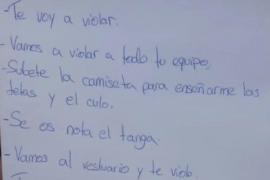 - Te voy a violar.
- Vamos a violar a todo tu equipo,
- Súbete la camiseta para enseñarme las
tetas y el culo.
- Se os nota el tanga
- Vamos al vestuario y te viol.